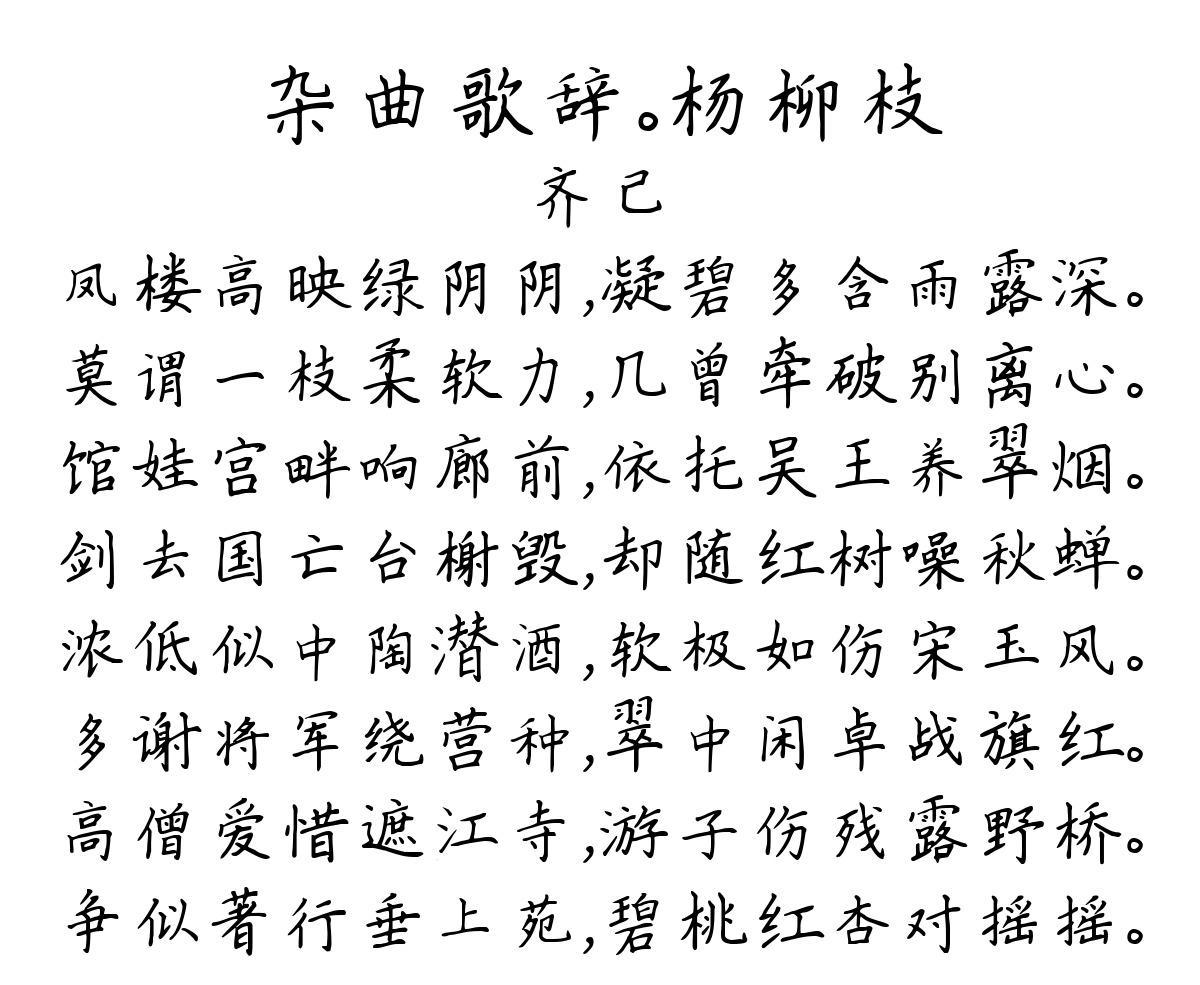 杂曲歌辞。杨柳枝
齐己
凤楼高映绿阴阴,凝碧多含雨露深。
莫谓一枝柔软力,几曾牵破别离心。
馆娃宫畔响廊前,依托吴王养翠烟。
剑去国亡台榭毁,却随红树噪秋蝉。
浓低似中陶潜酒,软极如伤宋玉风。
多谢将军绕营种,翠中闲卓战旗红。
高僧爱惜遮江寺,游子伤残露野桥。
争似著行垂上苑,碧桃红杏对摇摇。